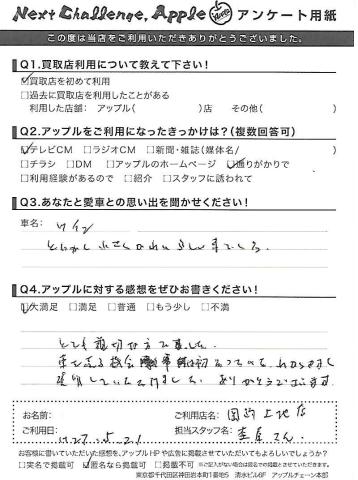 Next Challenge, Apple アンケート用紙
この度は当店をご利用いただきありがとうございました。
Q1.買取店利用について教えて下さい!
☑買取を初めて利用
□過去に買取店を利用したことがある
利用した店舗: アップル( )店 その他( )
Q2.アップルをご利用になったきっかけは?(複数回答可)
☑テレビCM □ラジオCM □新聞・雑誌(媒体名/ )
□チラシ □DM □アップルのホームページ ☑通りがかりで
□利用経験があるので □紹介 □スタッフに誘われて
Q3.あなたと愛車との思い出を聞かせください!
車名:
Q4.アップルに対する感想をぜひお書きください!
☑大満足 □満足 □普通 □もう少し □不満
とても親切な方でした。
車を売る機会
説明していただけました。ありがとうございます。
お名前: ご利用店名: 店
ご利用日: 担当スタッフ名: さん
お客様に書いていただいた感想を、アップルHPや広告に掲載させていただいてもよろしいでしょうか?
□実名で掲載可 ☑匿名なら掲載可 □掲載不可 ※ご記入がない場合は匿名での掲載とさせていただきます。
東京都千代田区神田岩本町1番地5 清水ビル6F アップルチェーン本部